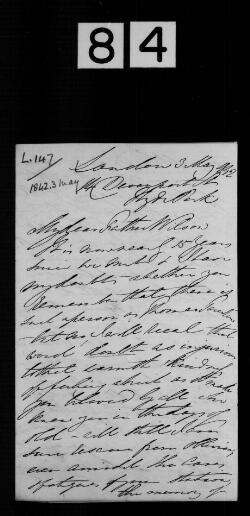 84
L.147
1842.3 May
London 3 May 1842
14 Devonport St
Hyde Park
My dear Father Wilson
It is now near 15 years
since we and I have
my doubts whether you
remember that there is
such a person as
but no I will recal that
word doubt as injurious
to that warmth & kindness
of feeling which as
you beloved by all who
knew you in the days of
old will still I am
sure
even amidst the cares
& fatigues of your
the memory of